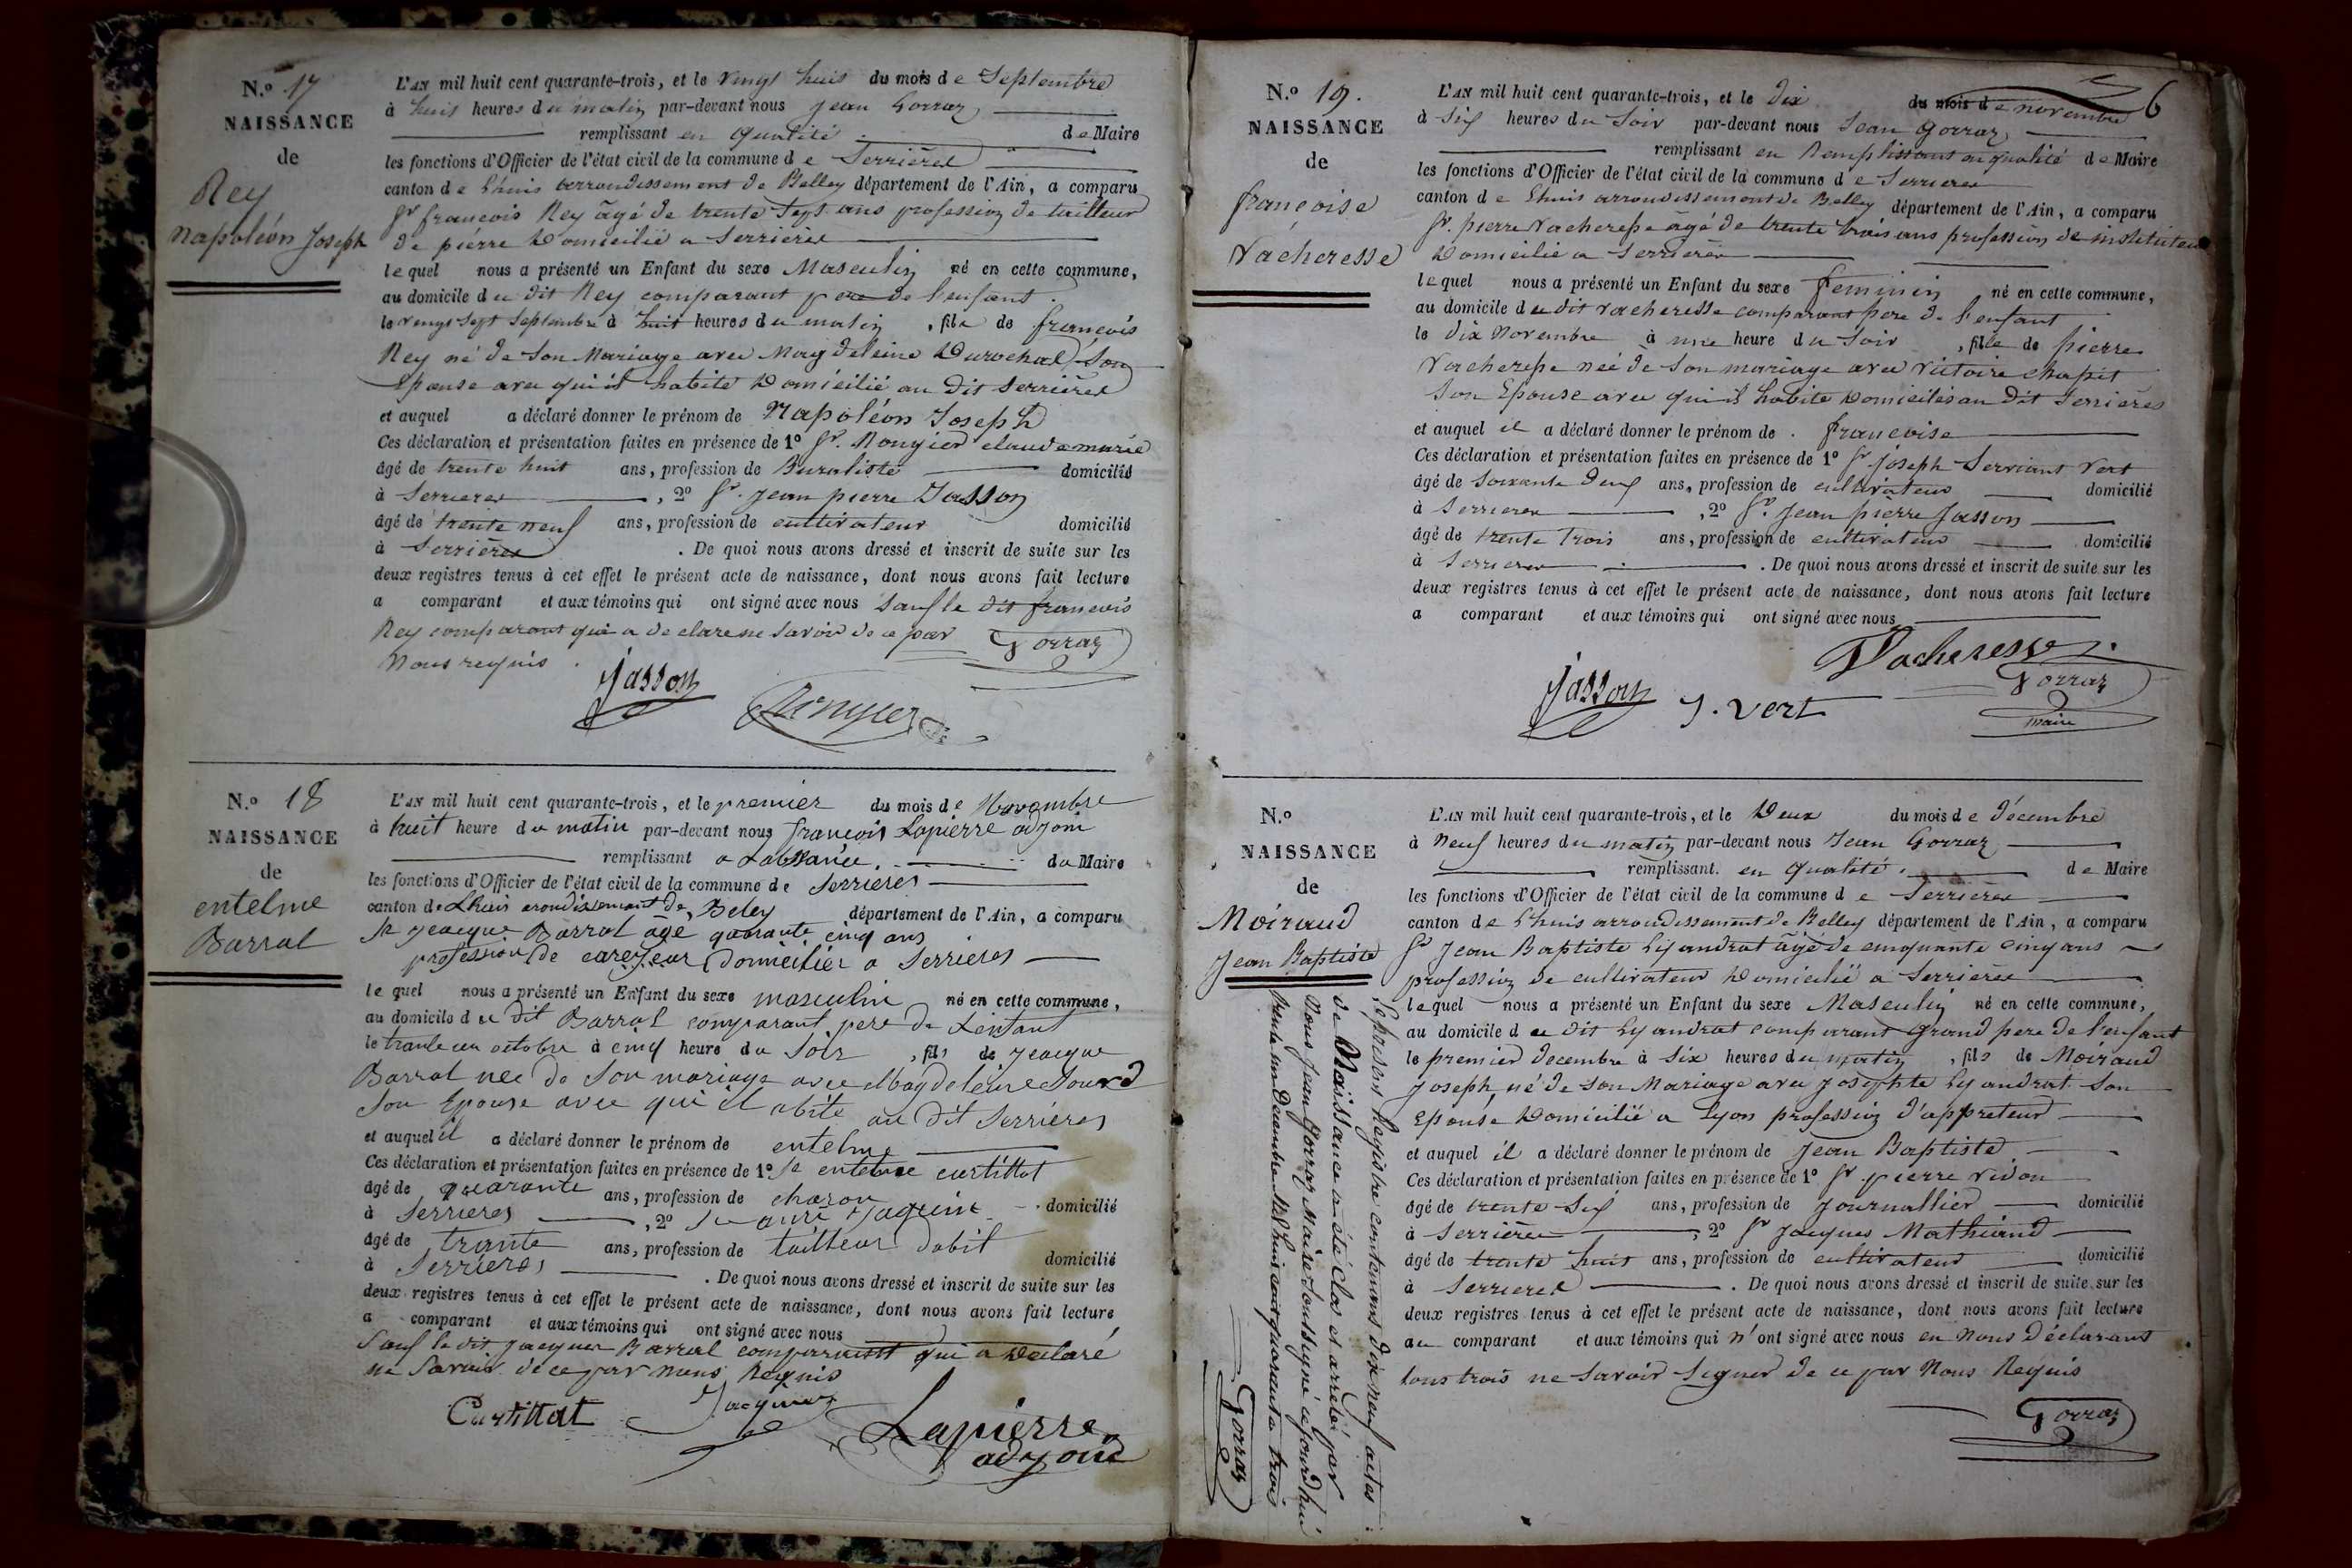 N.o 17
NAISSANCE
de
Rey
napoléon Joseph
L'AN mil huit cent quarante-trois, et le vingt huit du mois de Septembre
à huit heures du matin par-devant nous jean Gorraz
remplissant en qualité de Maire
les fonctions d'Officier de l'état civil de la commune de Serrières
canton de Lhuis arrondissement de Belley département de l'Ain, a comparu
sr francois Rey âgé de trente sept ans profession de tailleur
de piérre Domicilié a Serrières
lequel nous a présenté un Enfant du sexe Masculin né en cette commune,
au domicile du dit Rey comparant pere de l'enfant.
le vingt sept Septembre à huit heures du matin, fils de francois
Rey né de Son Mariage avec Magdeleine Durochat Son
Epouse avec qui il habite Domicilié au dit Serrières
et auquel a déclaré donner le prénom de Napoléon Joseph
Ces déclaration et présentation faites en présence de 1o sr. Mongier claude marie
âgé de trente huit ans, profession de Buraliste domicilié
à Serrieres, 2o sr. Jean pierre Jasson
âgé de trente neuf ans, profession de cultivateur domicilié
à Serrières. De quoi nous avons dressé et inscrit de suite sur les
deux registres tenus à cet effet le présent acte de naissance, dont nous avons fait lecture
a comparant et aux témoins qui ont signé avec nous Sauf le dit francois
Rey comparant qui a declare ne Savoir de ce par Gorraz
Nous requis.
Jasson
N.o 18
NAISSANCE
de
entelme
Barral
L'AN mil huit cent quarante-trois, et le premier du mois de Novembre
à huit heure du matin par-devant nous francois Lapierre adjoin
remplissant a Labsance. du Maire
les fonctions d'Officier de l'état civil de la commune de Serrieres
canton de Lhuis arondisement de Beley département de l'Ain, a comparu
sr jeacque Barral age quarante cinq ans
profession de careyeur Domicilier a Serrieres
lequel nous a présenté un Enfant du sexe masculin né en cette commune,
au domicile du dit Barral comparant pere de Lenfant
le trante un octobre à cinq heure du Soir, fils de jeacque
Barral nee de Son mariage avec Magdeleine Sourd
Son Epouse avec qui il abite au dit Serrieres
et auquel il a déclaré donner le prénom de entelme
Ces déclaration et présentation faites en présence de 1o sr entelme curtittat
âgé de quarante ans, profession de charon domicilié
à Serrieres, 2o
âgé de trante ans, profession de tailleur dabit domicilié
à Serrieres. De quoi nous avons dressé et inscrit de suite sur les
deux registres tenus à cet effet le présent acte de naissance, dont nous avons fait lecture
a comparant et aux témoins qui ont signé avec nous
Sauf le dit Jacques Barral comparaint qui a Declaré
ne Savoir de ce par nous Requis
Curtittat
Jacquin
Lapierre
adjoin
6
N.o 19.
NAISSANCE
de
françoise
Vacheresse
L'AN mil huit cent quarante-trois, et le dix du mois de novembre
à six heures du Soir par-devant nous Jean Gorraz
remplissant en Remplissant en qualité de Maire
les fonctions d'Officier de l'état civil de la commune de Serrieres
canton de Lhuis arrondissement de Belley département de l'Ain, a comparu
sr. pierre Vacheresse âgé de trente trois ans profession de instituteur
Domicilié a Serrieres
lequel nous a présenté un Enfant du sexe feminin né en cette commune,
au domicile du dit vacheresse comparant pere de l'enfant
le dix Novembre à une heure du Soir, fille de pierre
Vacheresse née de Son mariage avec Victoire chapit
Son Epouse avec qui il habite Domiciliés au dit Serrières
et auquel il a déclaré donner le prénom de. françoise
Ces déclaration et présentation faites en présence de 1o sr joseph Serviant Vert
âgé de Soixante deux ans, profession de cultivateur domicilié
à Serrieres, 2o Sr. Jean pierre Jasson
âgé de trente trois ans, profession de cultivateur domicilié
à Serrieres. De quoi nous avons dressé et inscrit de suite sur les
deux registres tenus à cet effet le présent acte de naissance, dont nous avons fait lecture
a comparant et aux témoins qui ont signé avec nous
Vacheresse
Jasson J. Vert Gorraz
maire
N.o
NAISSANCE
de
Moiraud
Jean Baptiste
L'AN mil huit cent quarante-trois, et le Deux du mois de décembre
à Neuf heures du matin par-devant nous Jean Gorraz
remplissant. en qualité. de Maire
les fonctions d'Officier de l'état civil de la commune de Serrières
canton de Lhuis arrondissement de Belley département de l'Ain, a comparu
sr Jean Baptiste Lyandrat âgé de cinquante cinq ans
profession de cultivateur Domicilié a Serrières
lequel nous a présenté un Enfant du sexe Masculin né en cette commune,
au domicile du dit Lyandrat comparant grand pere de l'enfant
le premier decembre à six heures du matin, fils de Moiraud
Joseph, né de Son Mariage avec josephte Lyandrat Son
Epouse Domicilié a Lyon profession d'appreteur
et auquel il a déclaré donner le prénom de Jean Baptiste
Ces déclaration et présentation faites en présence de 1o sr pierre vidon
âgé de trente six ans, profession de journallier domicilié
à Serrières, 2o sr Jacques Mathiand
âgé de trente huit ans, profession de cultivateur domicilié
à Serrieres. De quoi nous avons dressé et inscrit de suite sur les
deux registres tenus à cet effet le présent acte de naissance, dont nous avons fait lecture
au comparant et aux témoins qui n'ont signé avec nous en Nous Déclarant
tous trois ne Savoir Signer de ce par Nous Requis
Gorraz
Le présent Registre contenant dix neuf actes
de Naissance a été clos et arreté par
Nous Jean Gorraz Maire Soussigné ajourd'hui
trente un Decembre Mil huit cent quarante trois
Gorraz